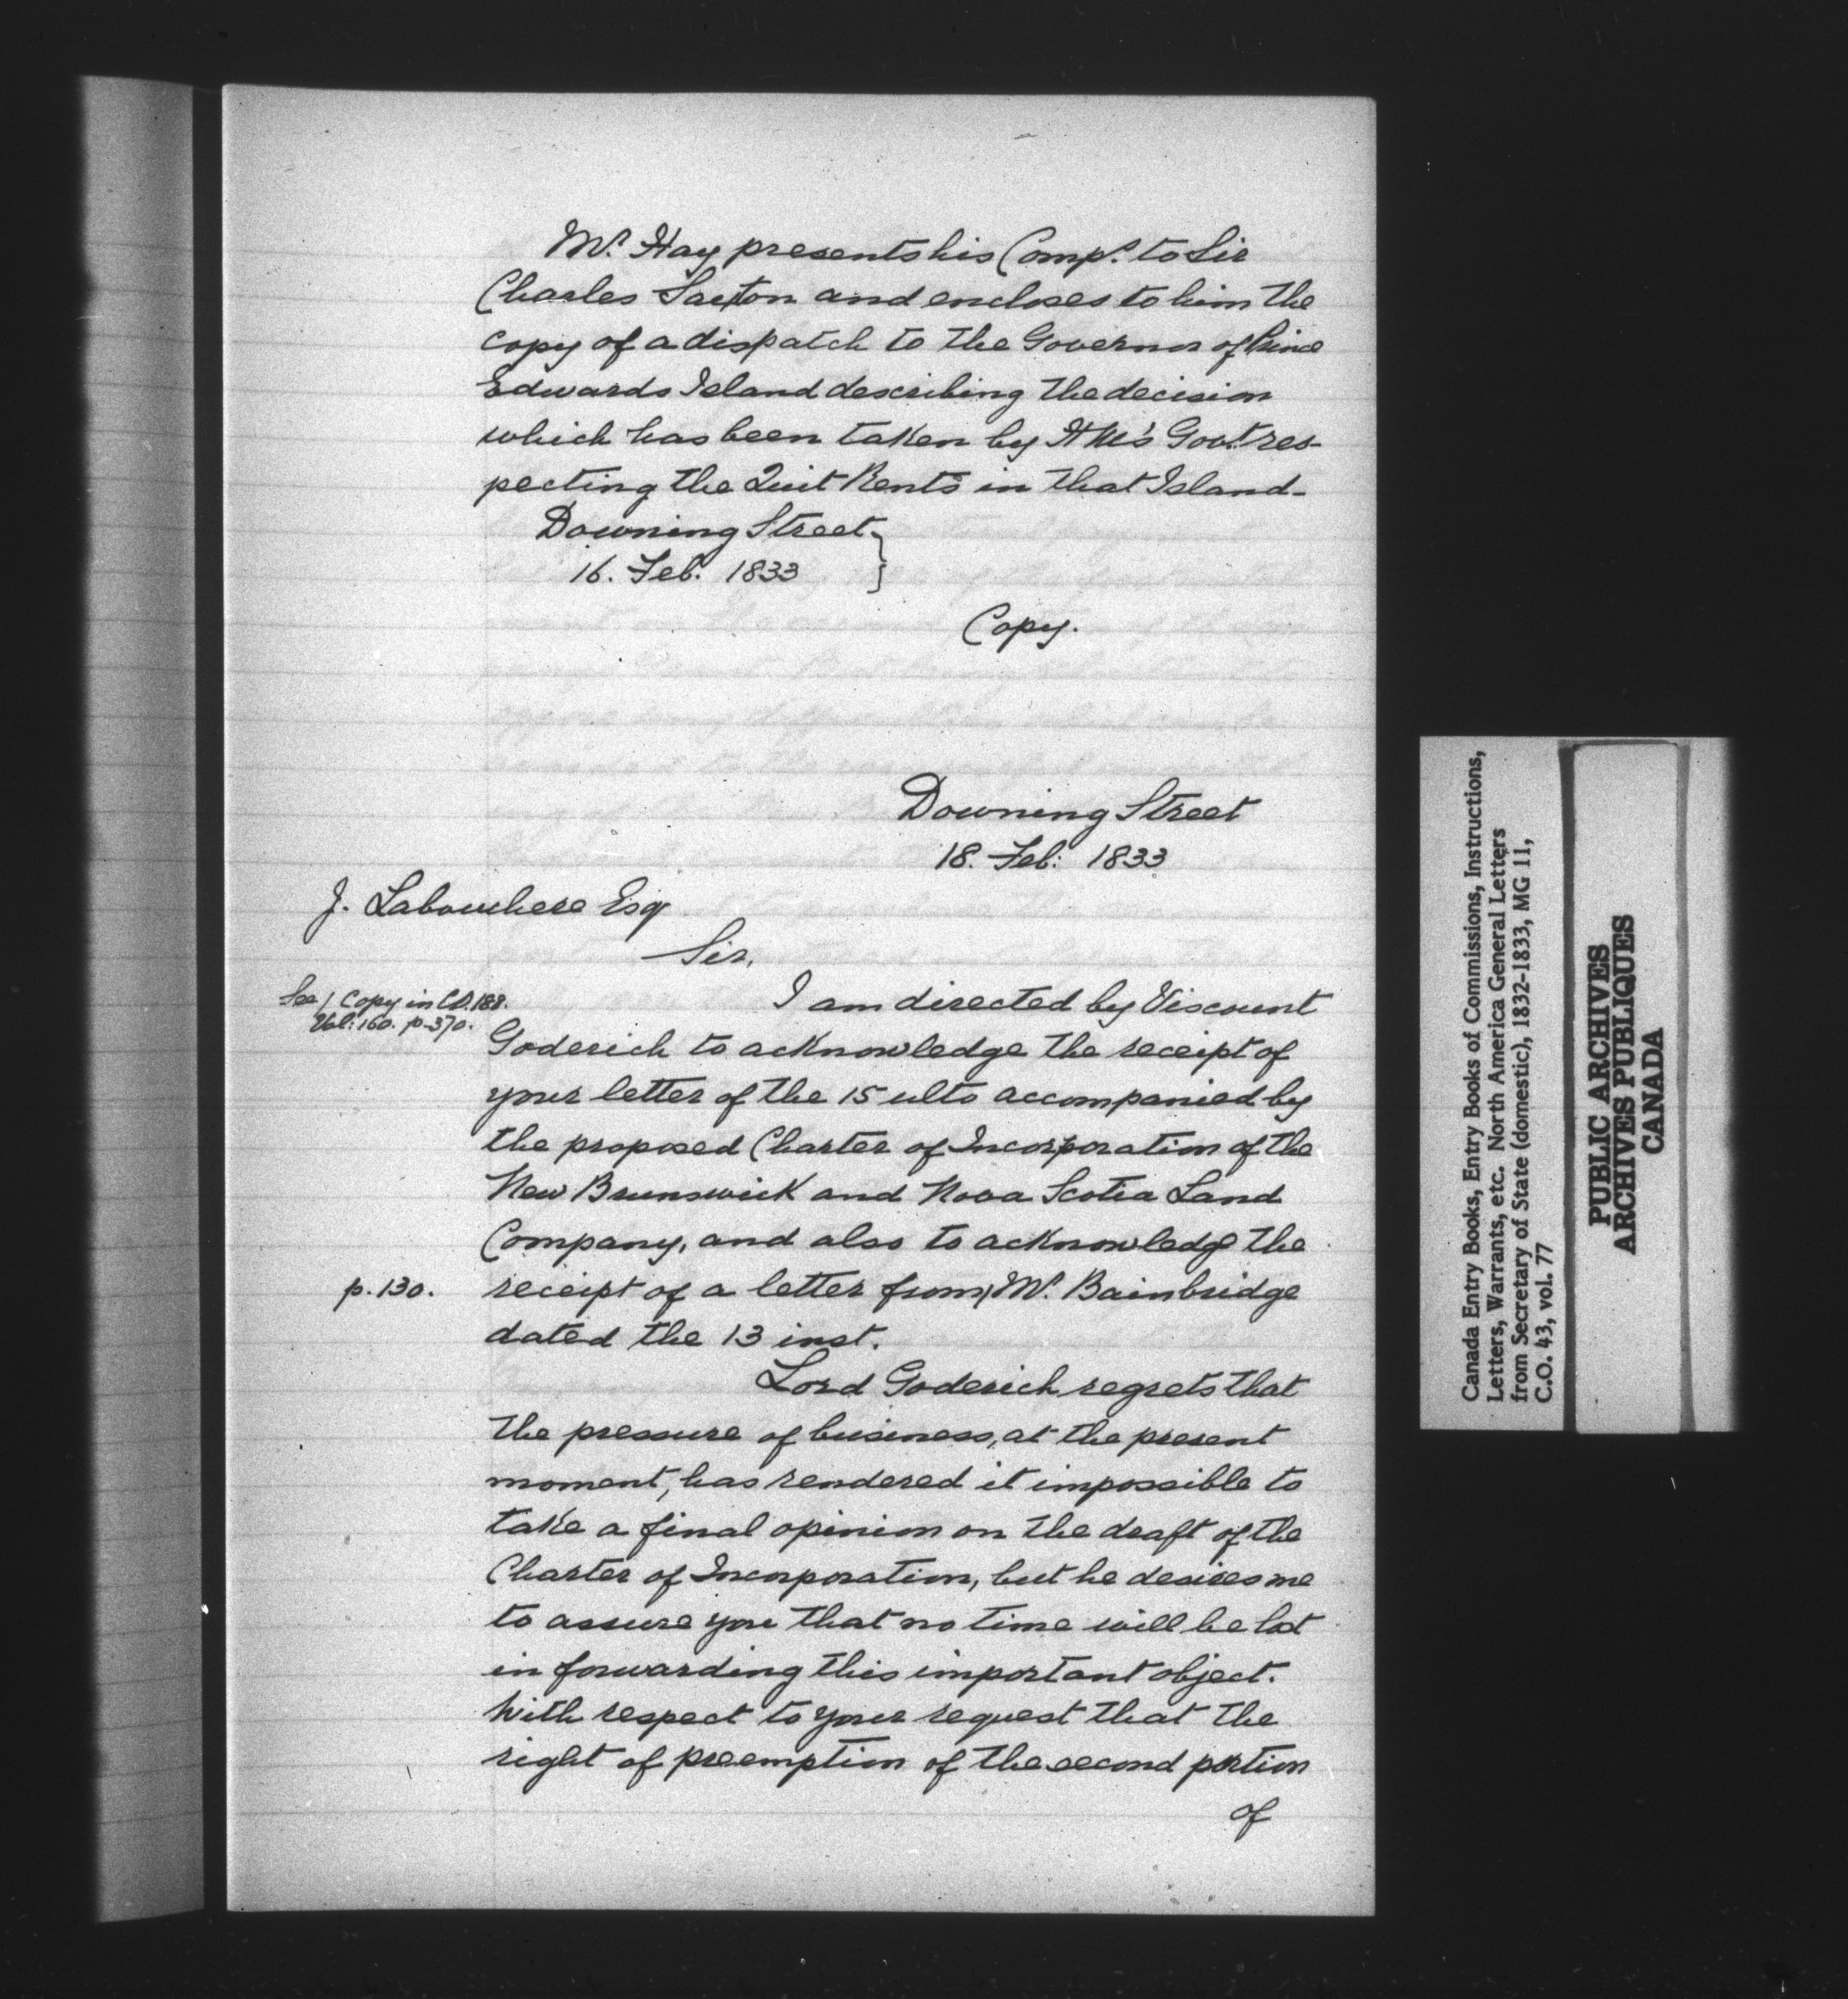 Mr. Hay presents his Comps. to Sir
Charles Saxton and encloses to him the
copy of a dispatch to the Governor of Prince
Edwards Island describing the decision
which has been taken by H M's Govt. res-
pecting the Quit Rents in that Island-
Downing Street
16. Feb. 1833
Copy.
Downing Street
18. Feb: 1833
J. Labouchere Esqr
Sir,
See / Copy in C.O. 188.
Vol: 160. p. 370.
I am directed by Viscount
Goderich to acknowledge the receipt of
your letter of the 15 ulto accompanied by
the proposed Charter of Incorporation of the
New Brunswick and Nova Scotia Land
Company, and also to acknowledge the
p. 130.
receipt of a letter from Mr. Bainbridge
dated the 13 inst.
Lord Goderich regrets that
the pressure of business, at the present
moment, has rendered it impossible to
take a final opinion on the draft of the
Charter of Incorporation, but he desires me
to assure you that no time will be lost
in forwarding this important object.
With respect to your request that the
right of preemption of the second portion
of
Canada Entry Books, Entry Books of Commissions, Instructions,
Letters, Warrants, etc. North America General Letters
from Secretary of State (domestic), 1832-1833, MG 11,
C.O. 43, vol. 77
PUBLIC ARCHIVES
ARCHIVES PUBLIQUES
CANADA